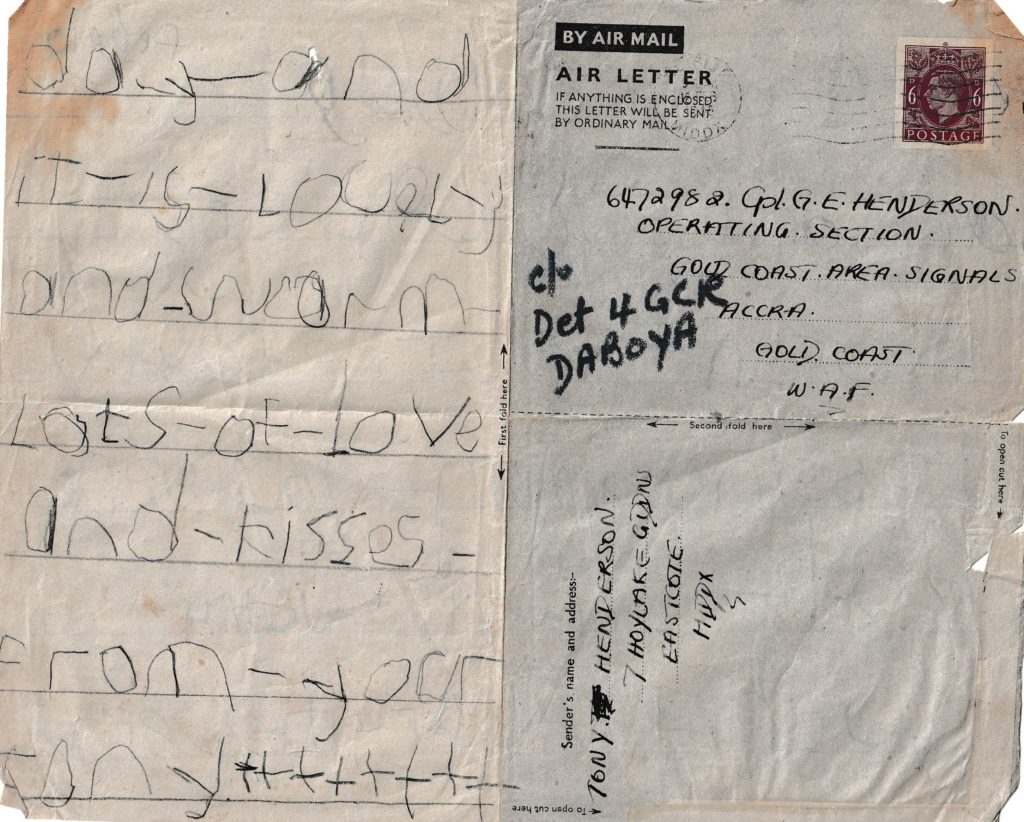 day-and
it-is-Lovel-y
and-swarm-
Lots-of-love
and-kisses-
From-your
tony+++++++
BY AIR MAIL
AIR LETTER
IF ANYTHING IS ENCLOSED
THIS LETTER WILL BE SENT
BY ORDINARY MAIL.
6 D 6 D
POSTAGE
6472982. Cpl. G. E. HENDERSON.
OPERATING. SECTION.
GOLD COAST. AREA. SIGNALS
ACCRA.
GOLD. COAST.
W. A. F.
c/o
Det 4 GCR
DABOYA
First fold here
Second fold here
To open cut here
Sender's name and address:-
TONY. HENDERSON.
7 HOYLAKE GDNS
EASTCOTE.
MDDX
To open cut here